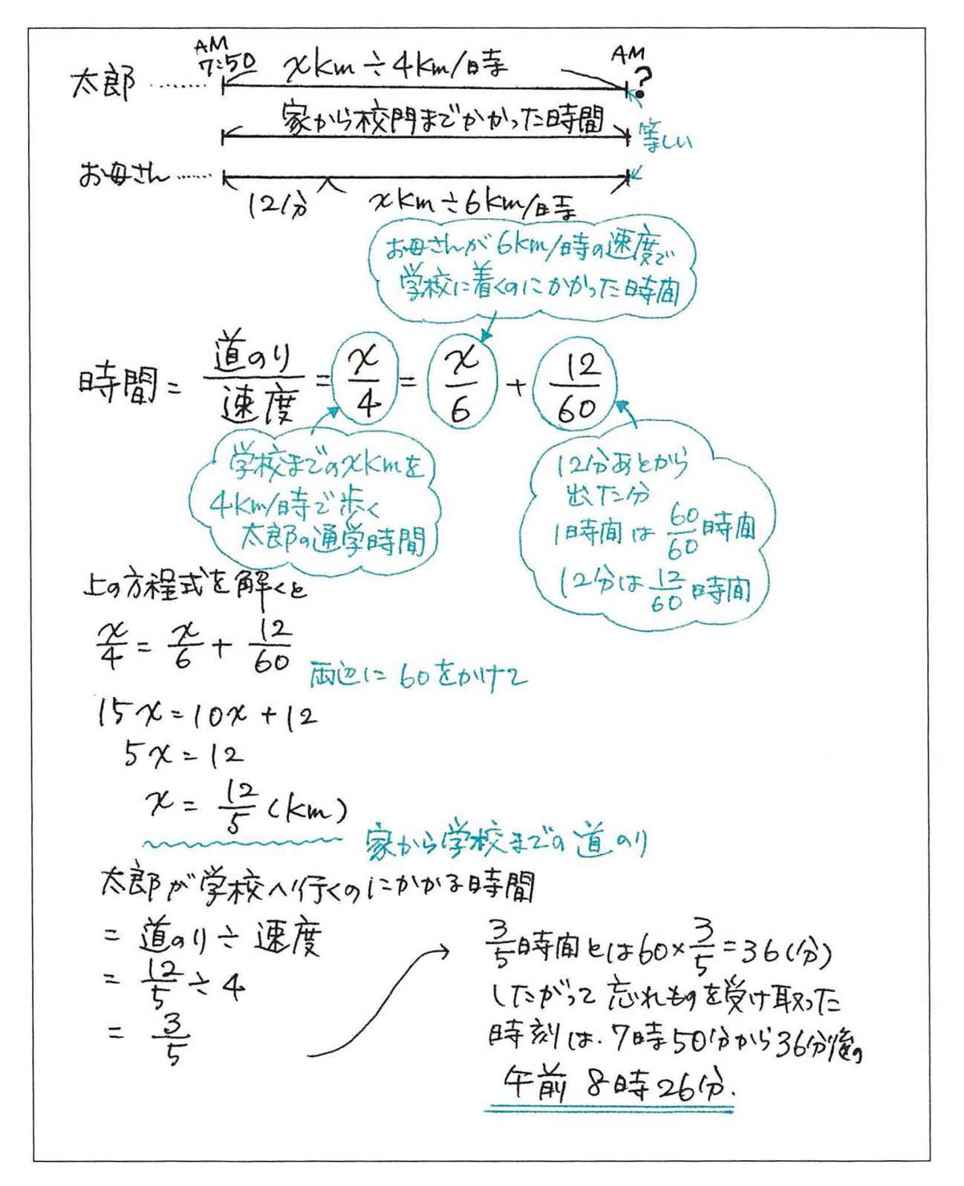 AM
7:50
xkm÷4km/時
AM
?
太郎……
家から校門までかかった時間
等しい
お母さん……
12分
xkm÷6km/時
お母さんが6km/時の速度で
学校に着くのにかかった時間
時間=道のり/速度=x/4=x/6+12/60
学校までのxkmを
4km/時で歩く
太郎の通学時間
12分あとから
出た分
1時間は60/60時間
12分は12/60時間
上の方程式を解くと
x/4=x/6+12/60
両辺に60をかけて
15x=10x+12
5x=12
x=12/5(km)
家から学校までの道のり
太郎が学校へ行くのにかかる時間
=道のり÷速度
=12/5÷4
=3/5
3/5時間とは60×3/5=36(分)
したがって忘れものを受け取った
時刻は、7時50分から36分後の
午前8時26分.